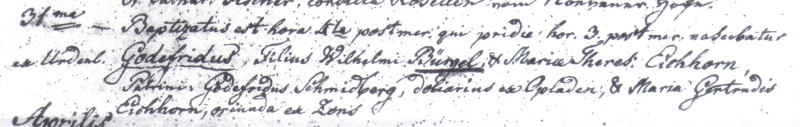 31 ma — Baptizatus est hora 4ta postmer. qui pridie hor. 3. postmer. nascebatur
ex Urdenb. Godefridus, Filius Wilhelmi Bürgel, & Mariæ Theres: Eichhorn,
Patrini: Godefridus Schmidberg, doliarius ex Opladen, & Maria Gertrudis
Eichhorn, oriunda ex Zons
Aprilis